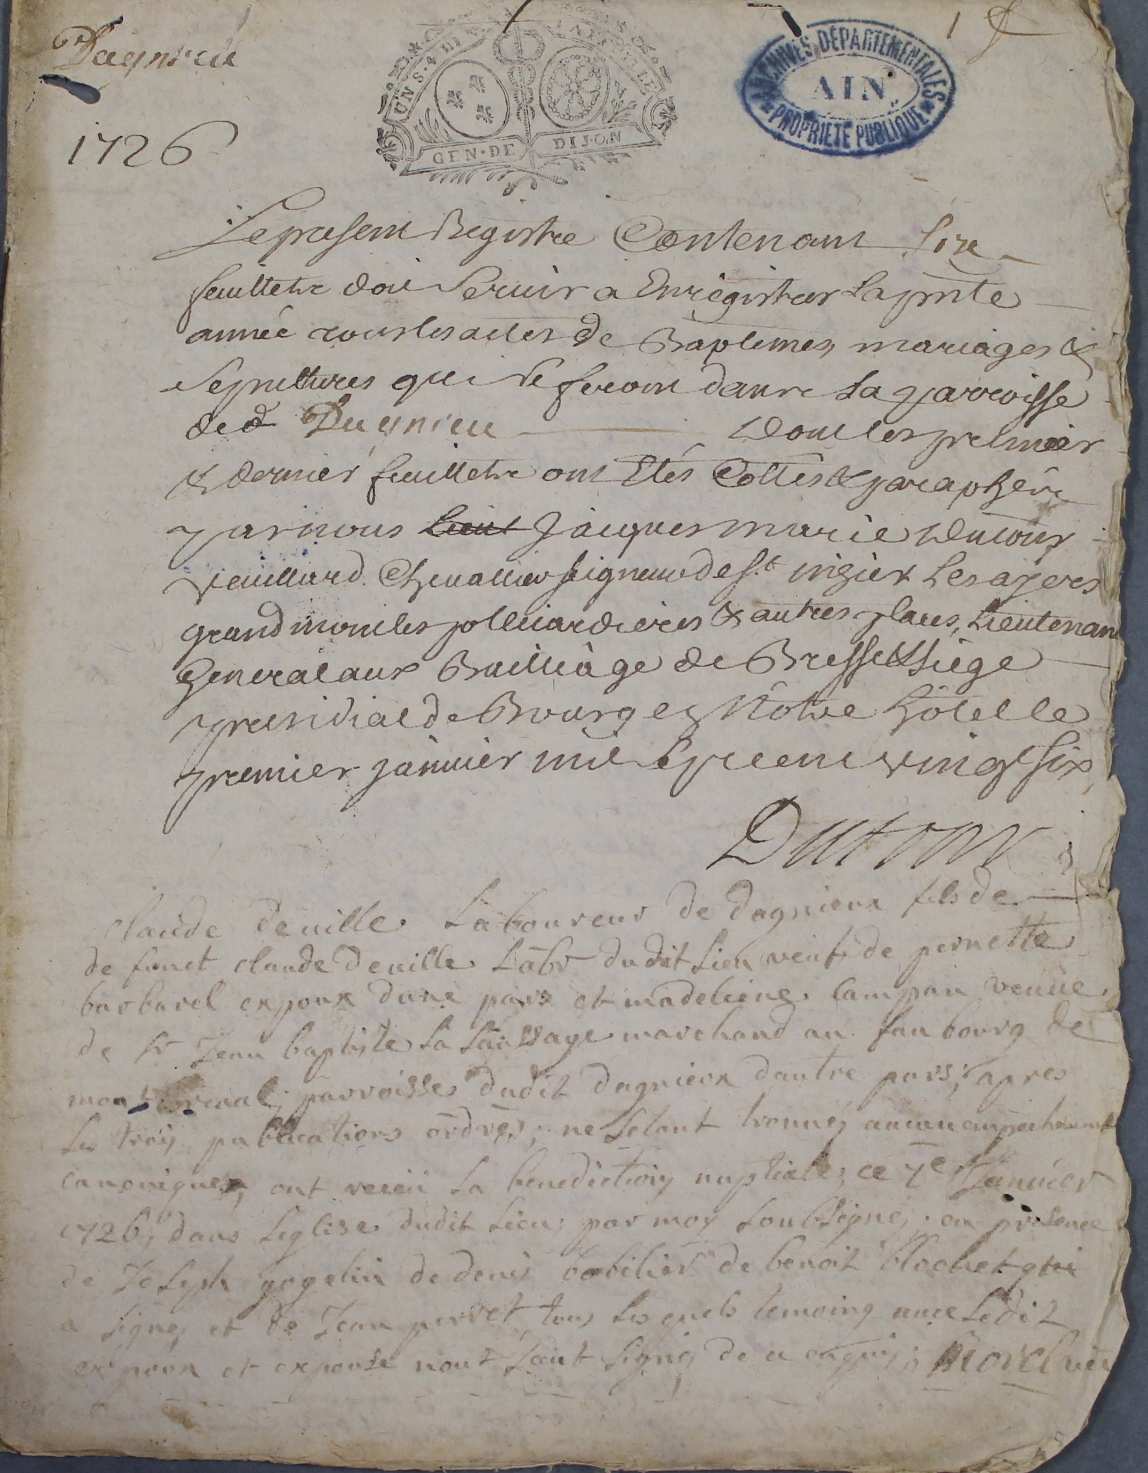 Dagnieu
1 f
ARCHIVES DÉPARTEMENTALES
AIN
PROPRIÉTÉ PUBLIQUE
UN S. 4 D.
GEN · DE DIJON
1726
Le present Registre Contenant six
feuillets doit servir a Enregistrer la pnte
année tous les actes de Baptemes, mariages &
sepultures qui se feront dans la parroisse
de Dagnieu dont les premier
& dernier feuillets ont Etés Cottés & paraphés
par nous Jacques marie Dutour
Vuillard Chevallier seigneur de St
grand autres places, Lieutenan
General aux Bailliage de Bresse & siege
presidial de Bourg en Nôtre hôtel le
premier janvier mil sept cent vingt six
Dutour
claude deville Laboureur de dagnieux fils de
de funct claude deville Labr dudit Lieu veuf de pernette
barbarel expoux dune part et madeleine campan veuve
de sr Jean baptiste marchand au faubourg de
montluval, parroisse dudit dagnieux dautre part; apres
les trois publications ordres; ne setant trouvé aucun empechement
canonique, ont receu La benediction nuptiale; ce 7e Janvier
1726, dans Leglise dudit Lieu; par moy soubsigné; en presence
de Joseph gogelin de denis de benoit blochet qui
a signé et de Jean perret tous les quels temoins avec Ledit
expoux et expouse nont sceut signé de ce enquis; Morel